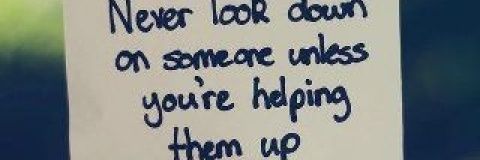 Never look down
on someone unless
you're helping
them up